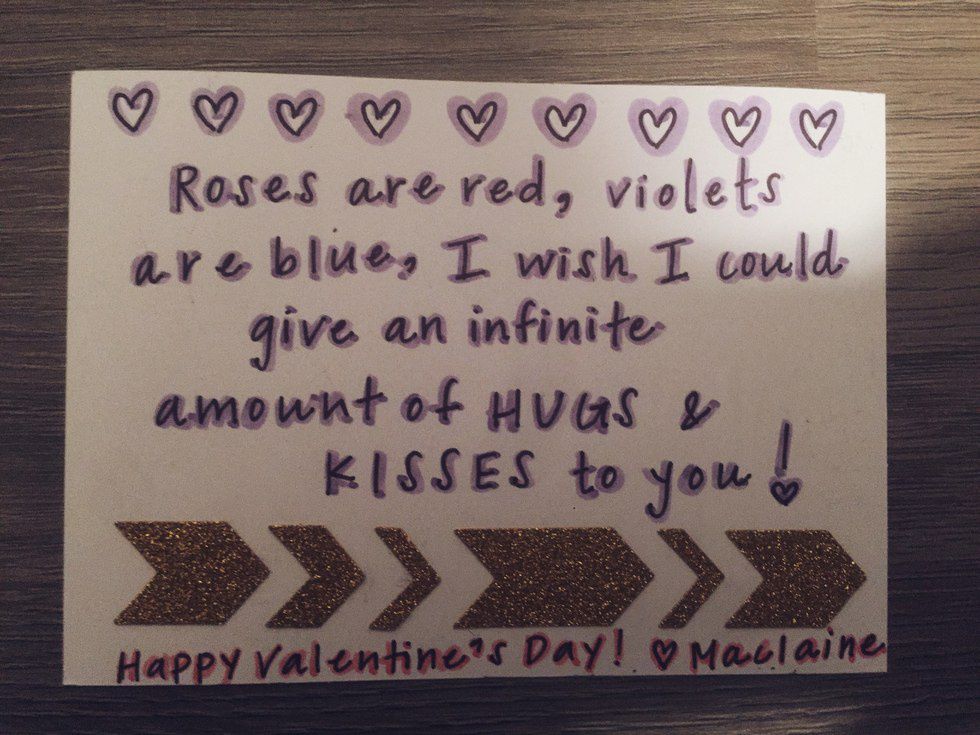 Roses are red, violets
are blue, I wish I could
give an infinite
amount of HUGS &
KISSES to you!
Happy Valentine's Day! ♡ Maclaine